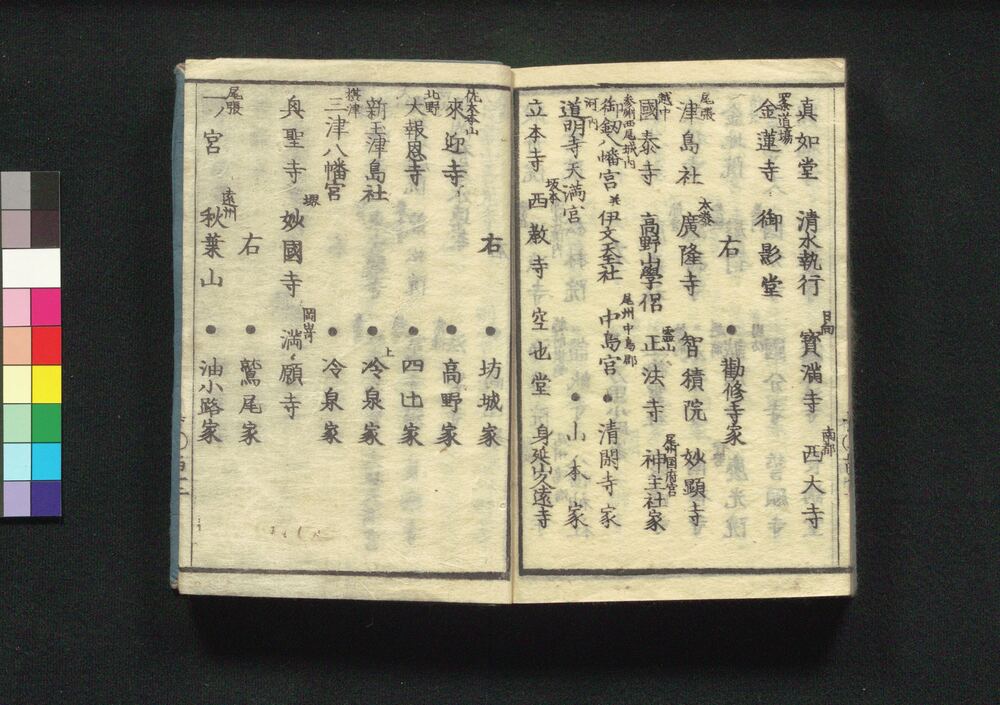 真如堂 清水執行 日向 寶満寺 南都 西大寺
四条道場 金蓮寺 御影堂
右 ● 勸修寺家
尾張 津島社 太秦 廣隆寺 智積院 妙顕寺
越中 國泰寺 高野山學侶 霊山 正法寺 尾州国府宮 神主社家
参州西尾城内 御劔八幡宮 并 伊文天王社 尾州中島郡 中島宮 ● 清閑寺家
河内 道明寺天満宮 ● 山本家
立本寺 坂本 西教寺 空也堂 身延山久遠寺
右 ● 坊城家
佐々木山 來迎寺 ● 高野家
北野 大報恩寺 ● 四辻家
新玉津島社 ● 上冷泉家
摂津 三津八幡宮 ● 冷泉家
興聖寺 堺 妙國寺 岡崎 満願寺
右 ● 鷲尾家
尾張 一ノ宮 遠州 秋葉山 ● 油小路家